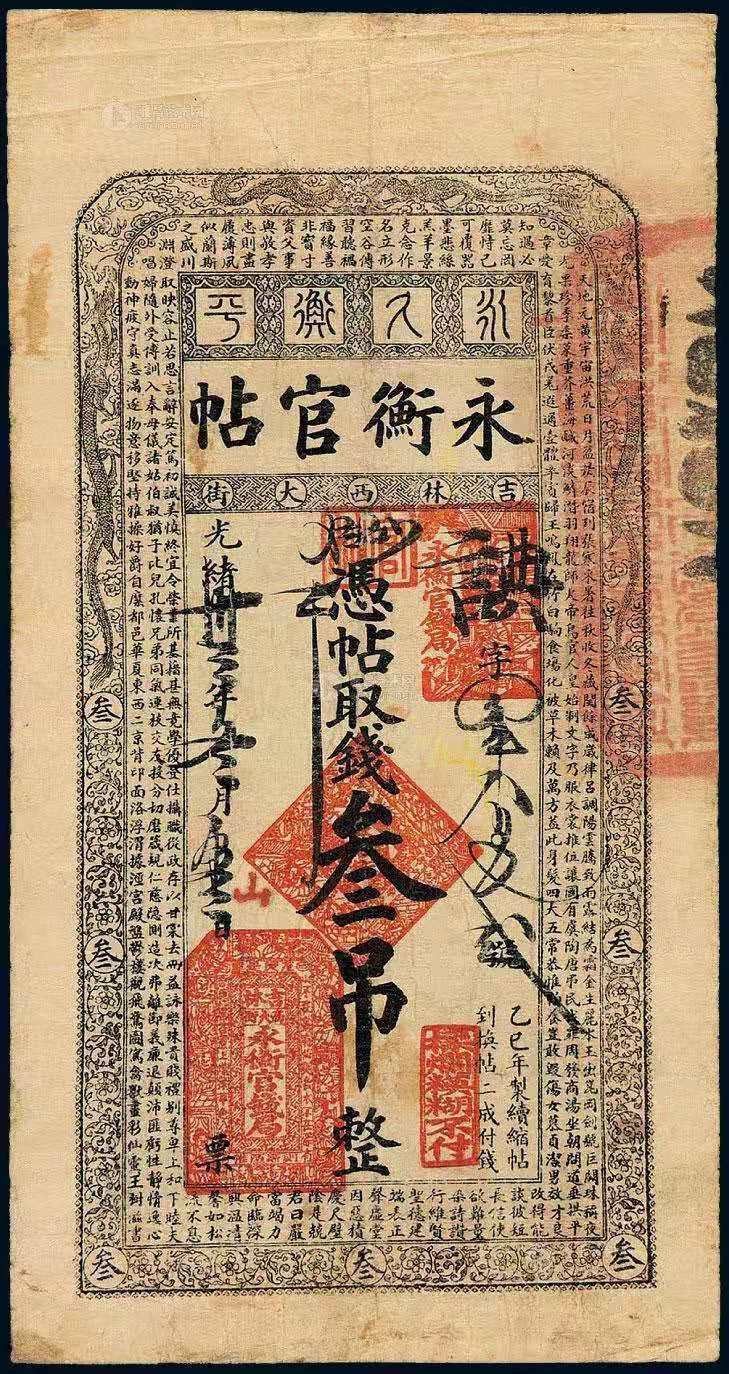 永久衡平
永衡官帖
吉林西大街
字
憑帖取錢叁吊整
光緒卅三年
月
日
票
乙巳年製續縮帖
到換帖二成付錢
永衡官錢局
永衡官錢局
模糊不付
山
叁
叁
叁
叁
叁
叁
叁
天地元黃宇宙洪荒日月盈昃辰宿列張寒來暑往秋收冬藏閏餘成歲律呂調陽雲騰致雨露結為霜金生麗水玉出崑岡劍號巨闕珠稱夜
光果珍李柰菜重芥薑海鹹河淡鱗潛羽翔龍師火帝鳥官人皇始制文字乃服衣裳推位讓國有虞陶唐弔民伐罪周發商湯坐朝問道垂拱平
章愛育黎首臣伏戎羌遐邇壹體率賓歸王鳴鳳在竹白駒食場化被草木賴及萬方蓋此身髮四大五常恭惟鞠養豈敢毀傷女慕貞潔男效才良
知過必
改得能
莫忘罔
談彼短
靡恃己
長信使
可覆器
欲難量
墨悲絲
染詩讚
羔羊景
行維賢
克念作
聖德建
名立形
端表正
空谷傳
聲虛堂
習聽禍
因惡積
福緣善
慶尺璧
非寶寸
陰是競
資父事
君曰嚴
與敬孝
當竭力
忠則盡
命臨深
履薄夙
興溫凊
似蘭斯
馨如松
之盛川
流不息
淵澄取映容止若思言辭安定篤初誠美慎終宜令榮業所基籍甚無竟學優登仕攝職從政存以甘棠去而益詠樂殊貴賤禮別尊卑上和下睦夫
唱婦隨外受傅訓入奉母儀諸姑伯叔猶子比兒孔懷兄弟同氣連枝交友投分切磨箴規仁慈隱惻造次弗離節義廉退顛沛匪虧性靜情逸心
動神疲守真志滿逐物意移堅持雅操好爵自縻都邑華夏東西二京背邙面洛浮渭據涇宮殿盤鬱樓觀飛驚圖寫禽獸畫彩仙靈